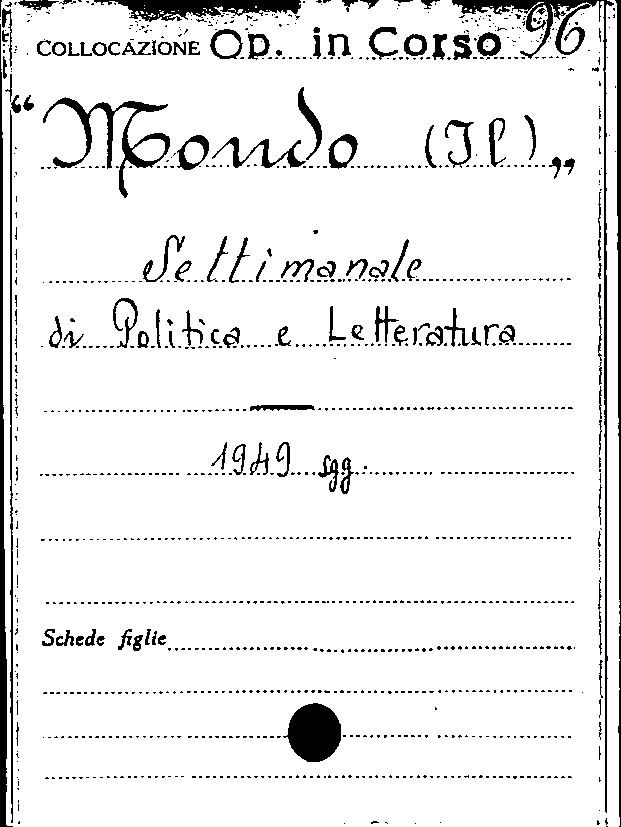 COLLOCAZIONE Op. in Corso 96
“Mondo (Il)„
Settimanale
di Politica e Letteratura
1949 sgg.
Schede figlie